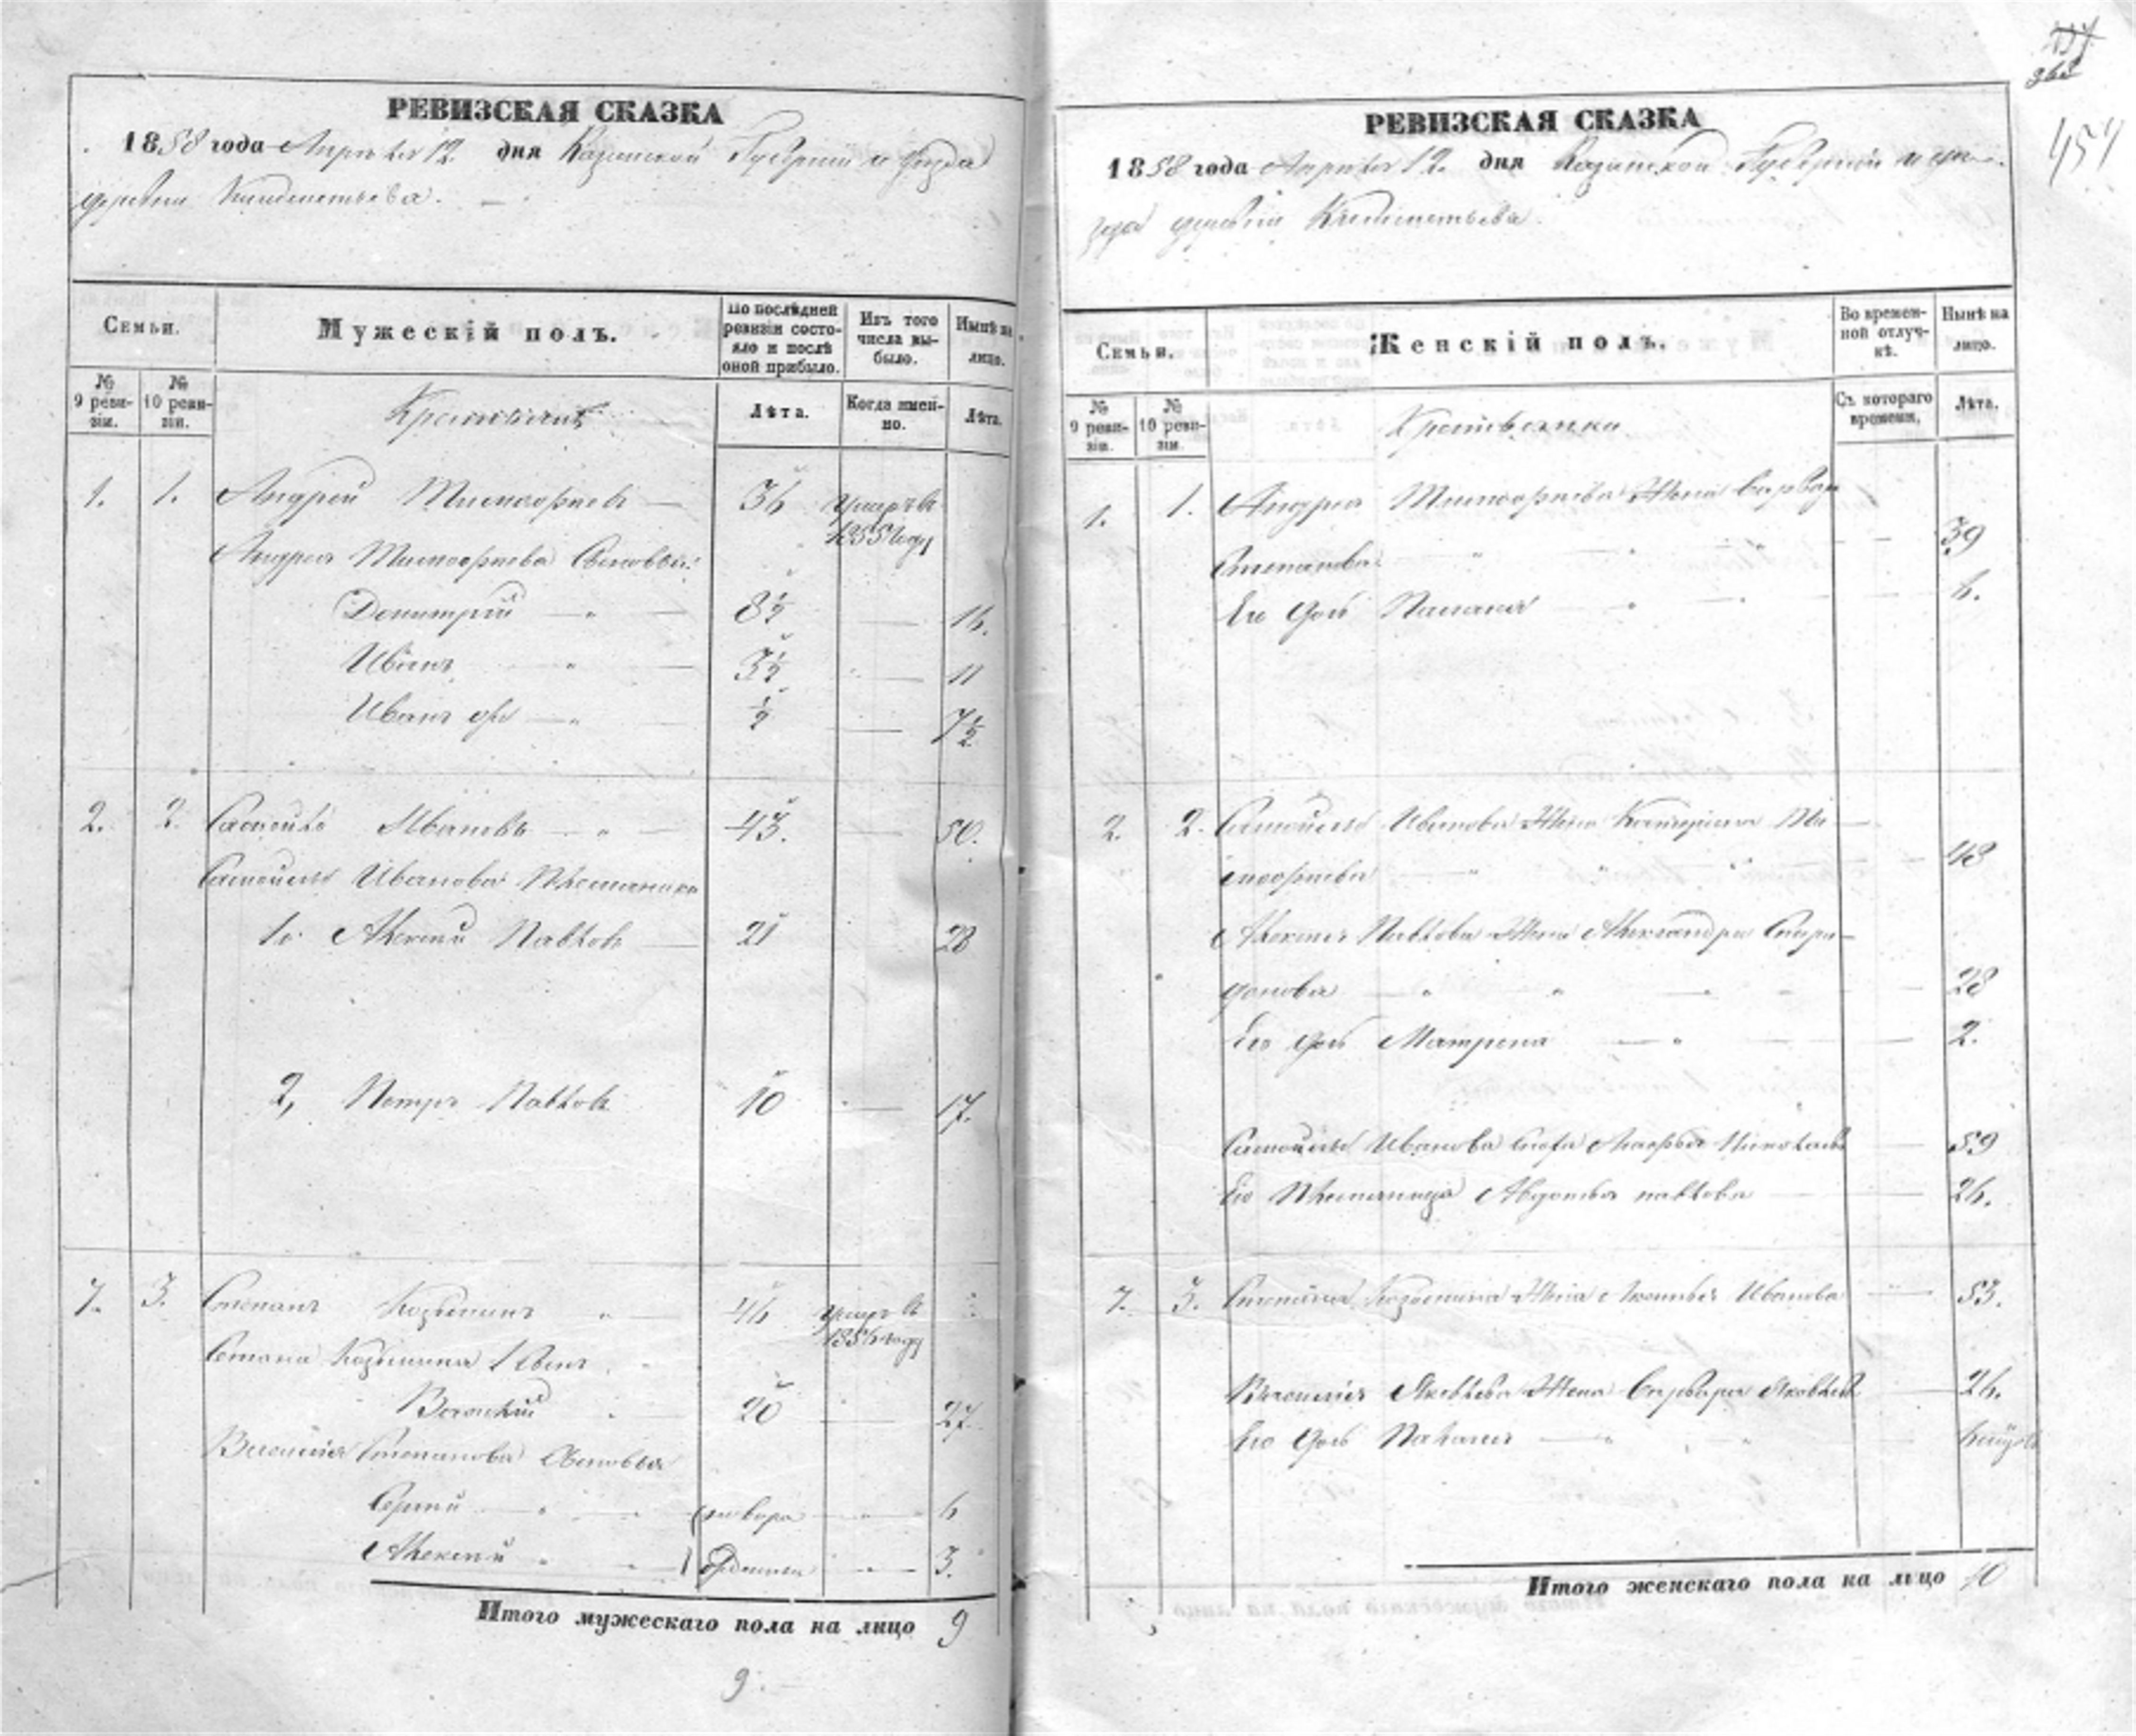 РЕВИЗСКАЯ СКАЗКА
1858 года Апреля 12. дня Казанской Губернии и уезда
деревни Киндиметьева.
Семьи.
Мужескій полъ.
По послѣдней ревизіи состояло и послѣ оной прибыло.
Изъ того числа выбыло.
Нынѣ на лицо.
№ 9 ревизіи.
№ 10 ревизіи.
Крестьяне
Лѣта.
Когда именно.
Лѣта.
1. 1. Андрей Тимофеевъ 36 Умеръ въ 1855 году
Андрея Тимофеева Сыновья:
Димитрий 8½ 16.
Иванъ 3½ 11
Иванъ ½ 7½
2. 2. Самойло Ивановъ 43. 50.
Самойлы Иванова Племянники
1й Алексей Павловъ 21 28
2, Петръ Павловъ 10 17.
7. 3. Степанъ Козьминъ 46 Умеръ въ году
Степана Козьмина Сынъ
Василий 20 27.
Василия Степанова Сыновья
Сергей 6
Алексей 3.
Итого мужескаго пола на лицо 9
9.
454
РЕВИЗСКАЯ СКАЗКА
1858 года Апреля 12. дня Казанской Губернии и уез-
да деревни Киндиметьева.
Семьи.
Женскій полъ.
Во временной отлучкѣ.
Нынѣ на лицо.
№ 9 ревизіи.
№ 10 ревизіи.
Крестьянки
Съ котораго времени.
Лѣта.
1. 1. Андрея Тимофеева Жена Варвара
Степанова 39
Его дочь 6.
2. 2. Самойлы Иванова Жена Катерина Ти-
мофеева 48
Алексея Павлова Жена Александра Спири-
донова 28
Его дочь Матрена 2.
Самойлы Иванова Марфа Николаева 59
Его Племянница Авдотья Павлова 26.
7. 3. Степана Козьмина Жена Иванова 53.
Василия Жена Варвара Яковлева 26.
Его дочь
Итого женскаго пола на лицо 10